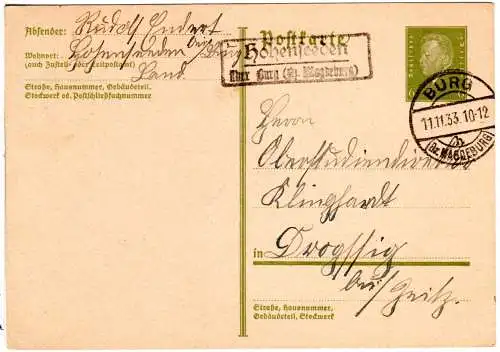 Absender: Rudolf Endert
Wohnort: Hohenseeden
(auch Zustell- oder Leitpostamt)
Land.
Straße, Hausnummer, Gebäudeteil,
Stockwerk od. Postschließfachnummer
Postkarte
Hohenseeden
über Burg (Bz. Magdeburg)
BURG
11.11.33.10-12
(Bz. MAGDEBURG)
Herrn
Oberstudiendirektor
Klinghardt
in Droyssig
Straße, Hausnummer,
Gebäudeteil, Stockwerk
Zeitz.